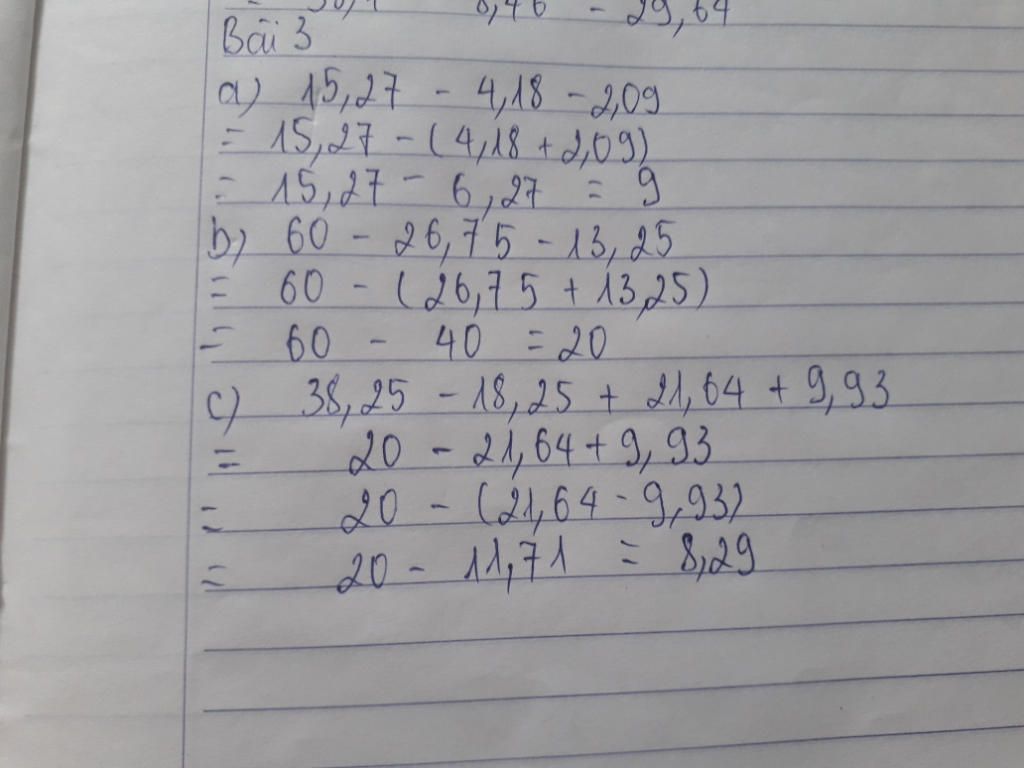 8,46 - 29,64
Bài 3
a) 15,27 - 4,18 - 2,09
= 15,27 - (4,18 + 2,09)
= 15,27 - 6,27 = 9
b) 60 - 26,75 - 13,25
= 60 - (26,75 + 13,25)
= 60 - 40 = 20
c) 38,25 - 18,25 + 21,64 + 9,93
= 20 - 21,64 + 9,93
= 20 - (21,64 - 9,93)
= 20 - 11,71 = 8,29